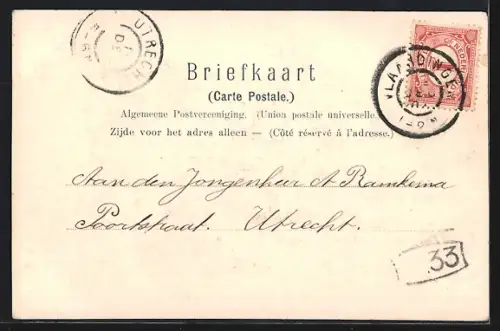 UTRECH
Briefkaart
(Carte Postale.)
Algemeene Postvereeniging. (Union postale universelle.)
Zijde voor het adres alleen — (Côté réservé à l'adresse.)
VLAARDINGEN
Aan den Jongenheer A Ramkema
Poortstraat. Utrecht.
33